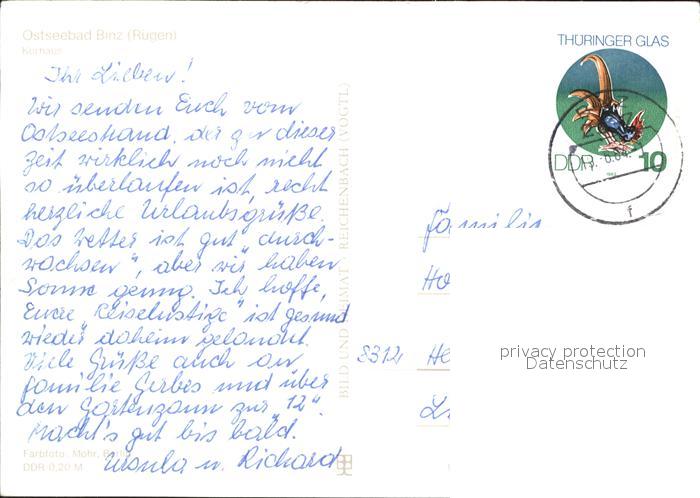 Ostseebad Binz (Rügen)
Kurhaus
THÜRINGER GLAS
DDR 10
1983
Ihr Lieben!
Wir senden Euch vom
Ostseestrand, der zu dieser
Zeit wirklich noch nicht
so überlaufen ist, recht
herzliche Urlaubsgrüße.
Das Wetter ist gut „durch-
wachsen“, aber wir haben
Sonne genug. Ich hoffe,
Eure „Reiselustige“ ist gesund
wieder daheim gelandet.
Viele Grüße auch an
Familie Gerbes und über
den Gartenzaun zur „12“.
Macht's gut bis bald.
Ursula u. Richard
Farbfoto: Mohr, Berlin
DDR 0,20 M
BILD UND HEIMAT REICHENBACH (VOGTL)
Familie
Ho
8312 He
privacy protection
Datenschutz